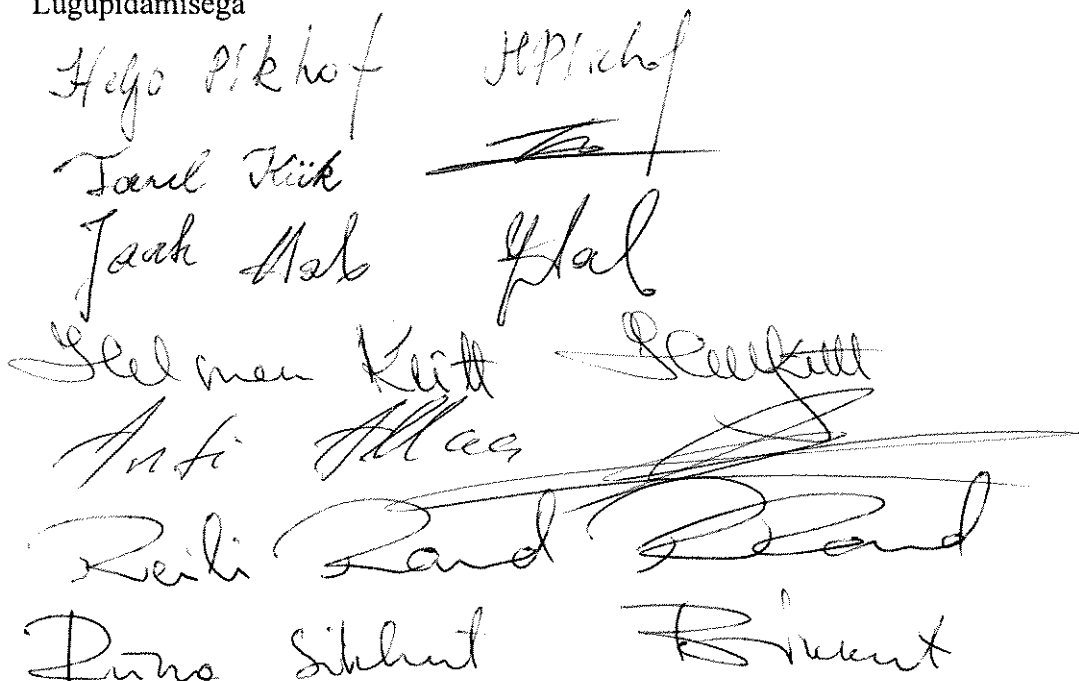 Lugupidamisega
Heljo Pikhof HPikhof
Tanel Kiik
Jaak Aab JAab
Helmen Kütt HelKütt
Anti Allas
Reili Rand RRand
Riina Sikkut RSikkut